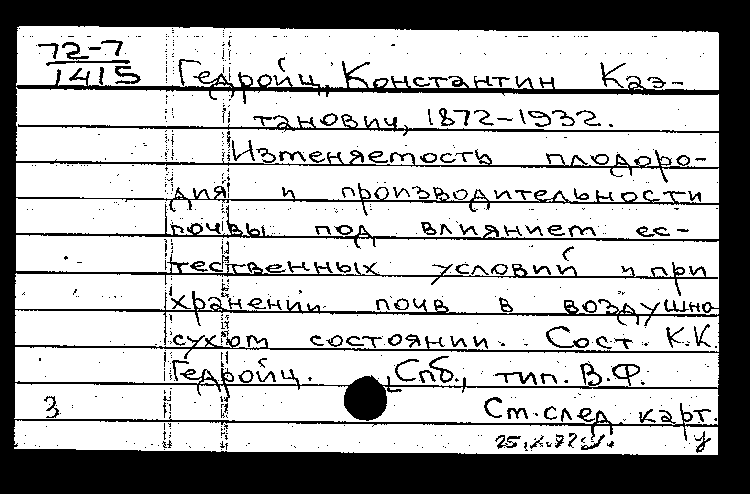 72-7
1415
Гедройц, Константин Каэ-
танович, 1872-1932.
Изменяемость плодоро-
дия и производительности
почвы под влиянием ес-
тественных условий и при
хранении почв в воздушно
сухом состоянии. Сост. К.К.
Гедройц. [Спб., тип. В.Ф.
3 См. след. карт.
25.X.72